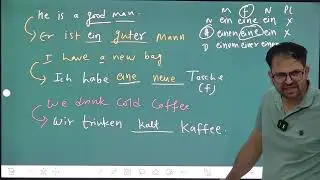 He is a good man.
Er ist ein guter mann
I have a new bag
Ich habe eine neue Tasche
(f)
We drink cold coffee
Wir trinken kalt Kaffee.
M F N PL
N ein eine ein X
A einen eine ein X
D einem einer einem